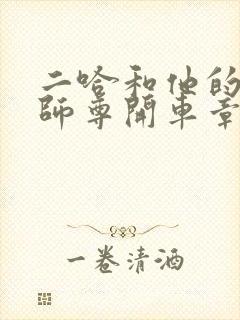 二哈和他的
师尊開車章
一卷清酒